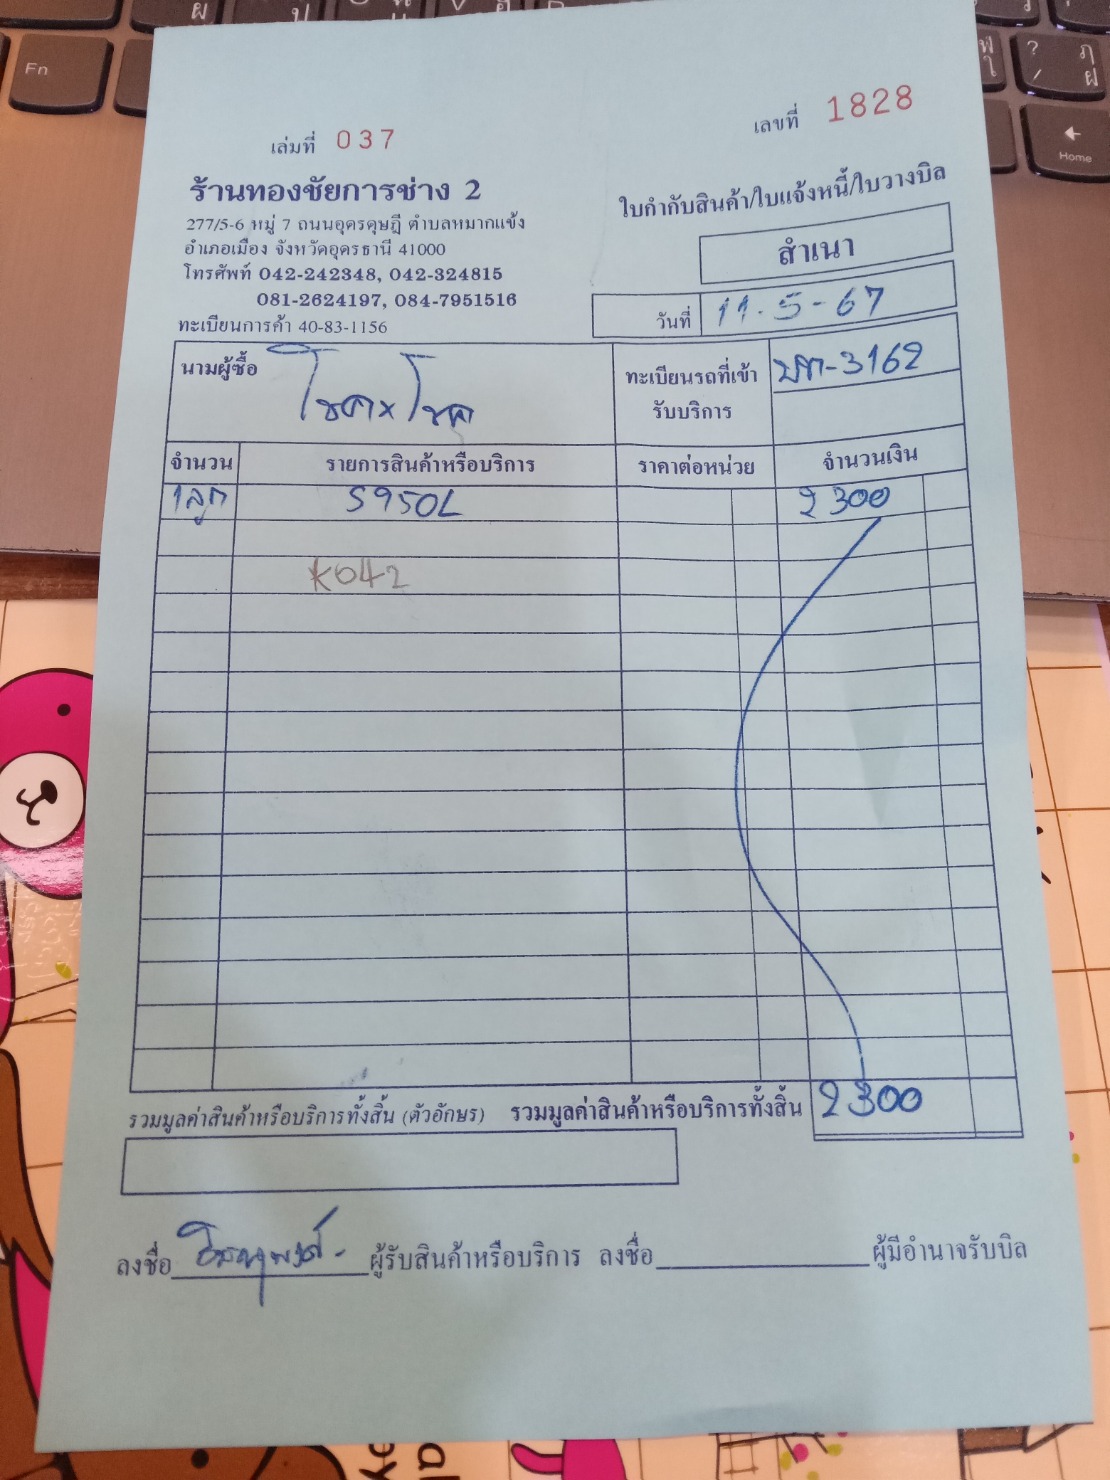 เล่มที่ 037
เลขที่ 1828
ร้านทองชัยการช่าง 2
277/5-6 หมู่ 7 ถนนอุดรดุษฎี ตำบลหมากแข้ง
อำเภอเมือง จังหวัดอุดรธานี 41000
โทรศัพท์ 042-242348, 042-324815
081-2624197, 084-7951516
ทะเบียนการค้า 40-83-1156
ใบกำกับสินค้า/ใบแจ้งหนี้/ใบวางบิล
สำเนา
วันที่ 11-5-67
นามผู้ซื้อ โชคxโชค
ทะเบียนรถที่เข้า
รับบริการ
-3162
จำนวน รายการสินค้าหรือบริการ ราคาต่อหน่วย จำนวนเงิน
1ลูก S950L 2300
K042
รวมมูลค่าสินค้าหรือบริการทั้งสิ้น (ตัวอักษร) รวมมูลค่าสินค้าหรือบริการทั้งสิ้น 2300
ลงชื่อ ผู้รับสินค้าหรือบริการ ลงชื่อ ผู้มีอำนาจรับบิล
Fn
Home